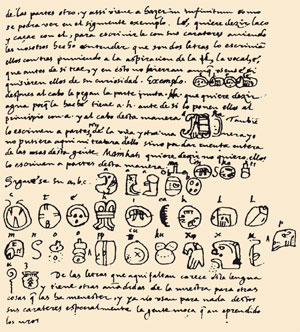 de las partes otro, y assi viene a hazer in infinitum como
se podra ver en el siguiente exemplo. Lé, quiere dezir laço
y caçar con el, para escrivirle con sus carateres aviendo
les nosotros hecho entender que son dos letras lo escrivian
ellos con tres puniendo a la aspiracion de la l, la vocal e,
que antes de si trae, y en esto no hierran
quisieren ellos de su curiosidad. Exemplo
despues al cabo le pegan la parte junta. Ha que quiere dezir
agua porque la haché tiene a. h. ante de si lo ponen ellos al
principio con a. y al cabo desta manera Tambie
lo escriven a partes de la una y otra manera yo
no pusiera aqui ni tratara dello sino por dar cuenta entera
de las cosas desta gente. Mainkati quiere dezir no quiero, ellos
lo escriven a partes desta manera
Siguese su a. b. c.
De las letras que aqui faltan carece esta lengua
y tiene otras añadidas de la nuestra para otras
cosas que las ha menester y ya no usan para nada destos
sus carateres especialmente la gente moça que an aprendido
los nros